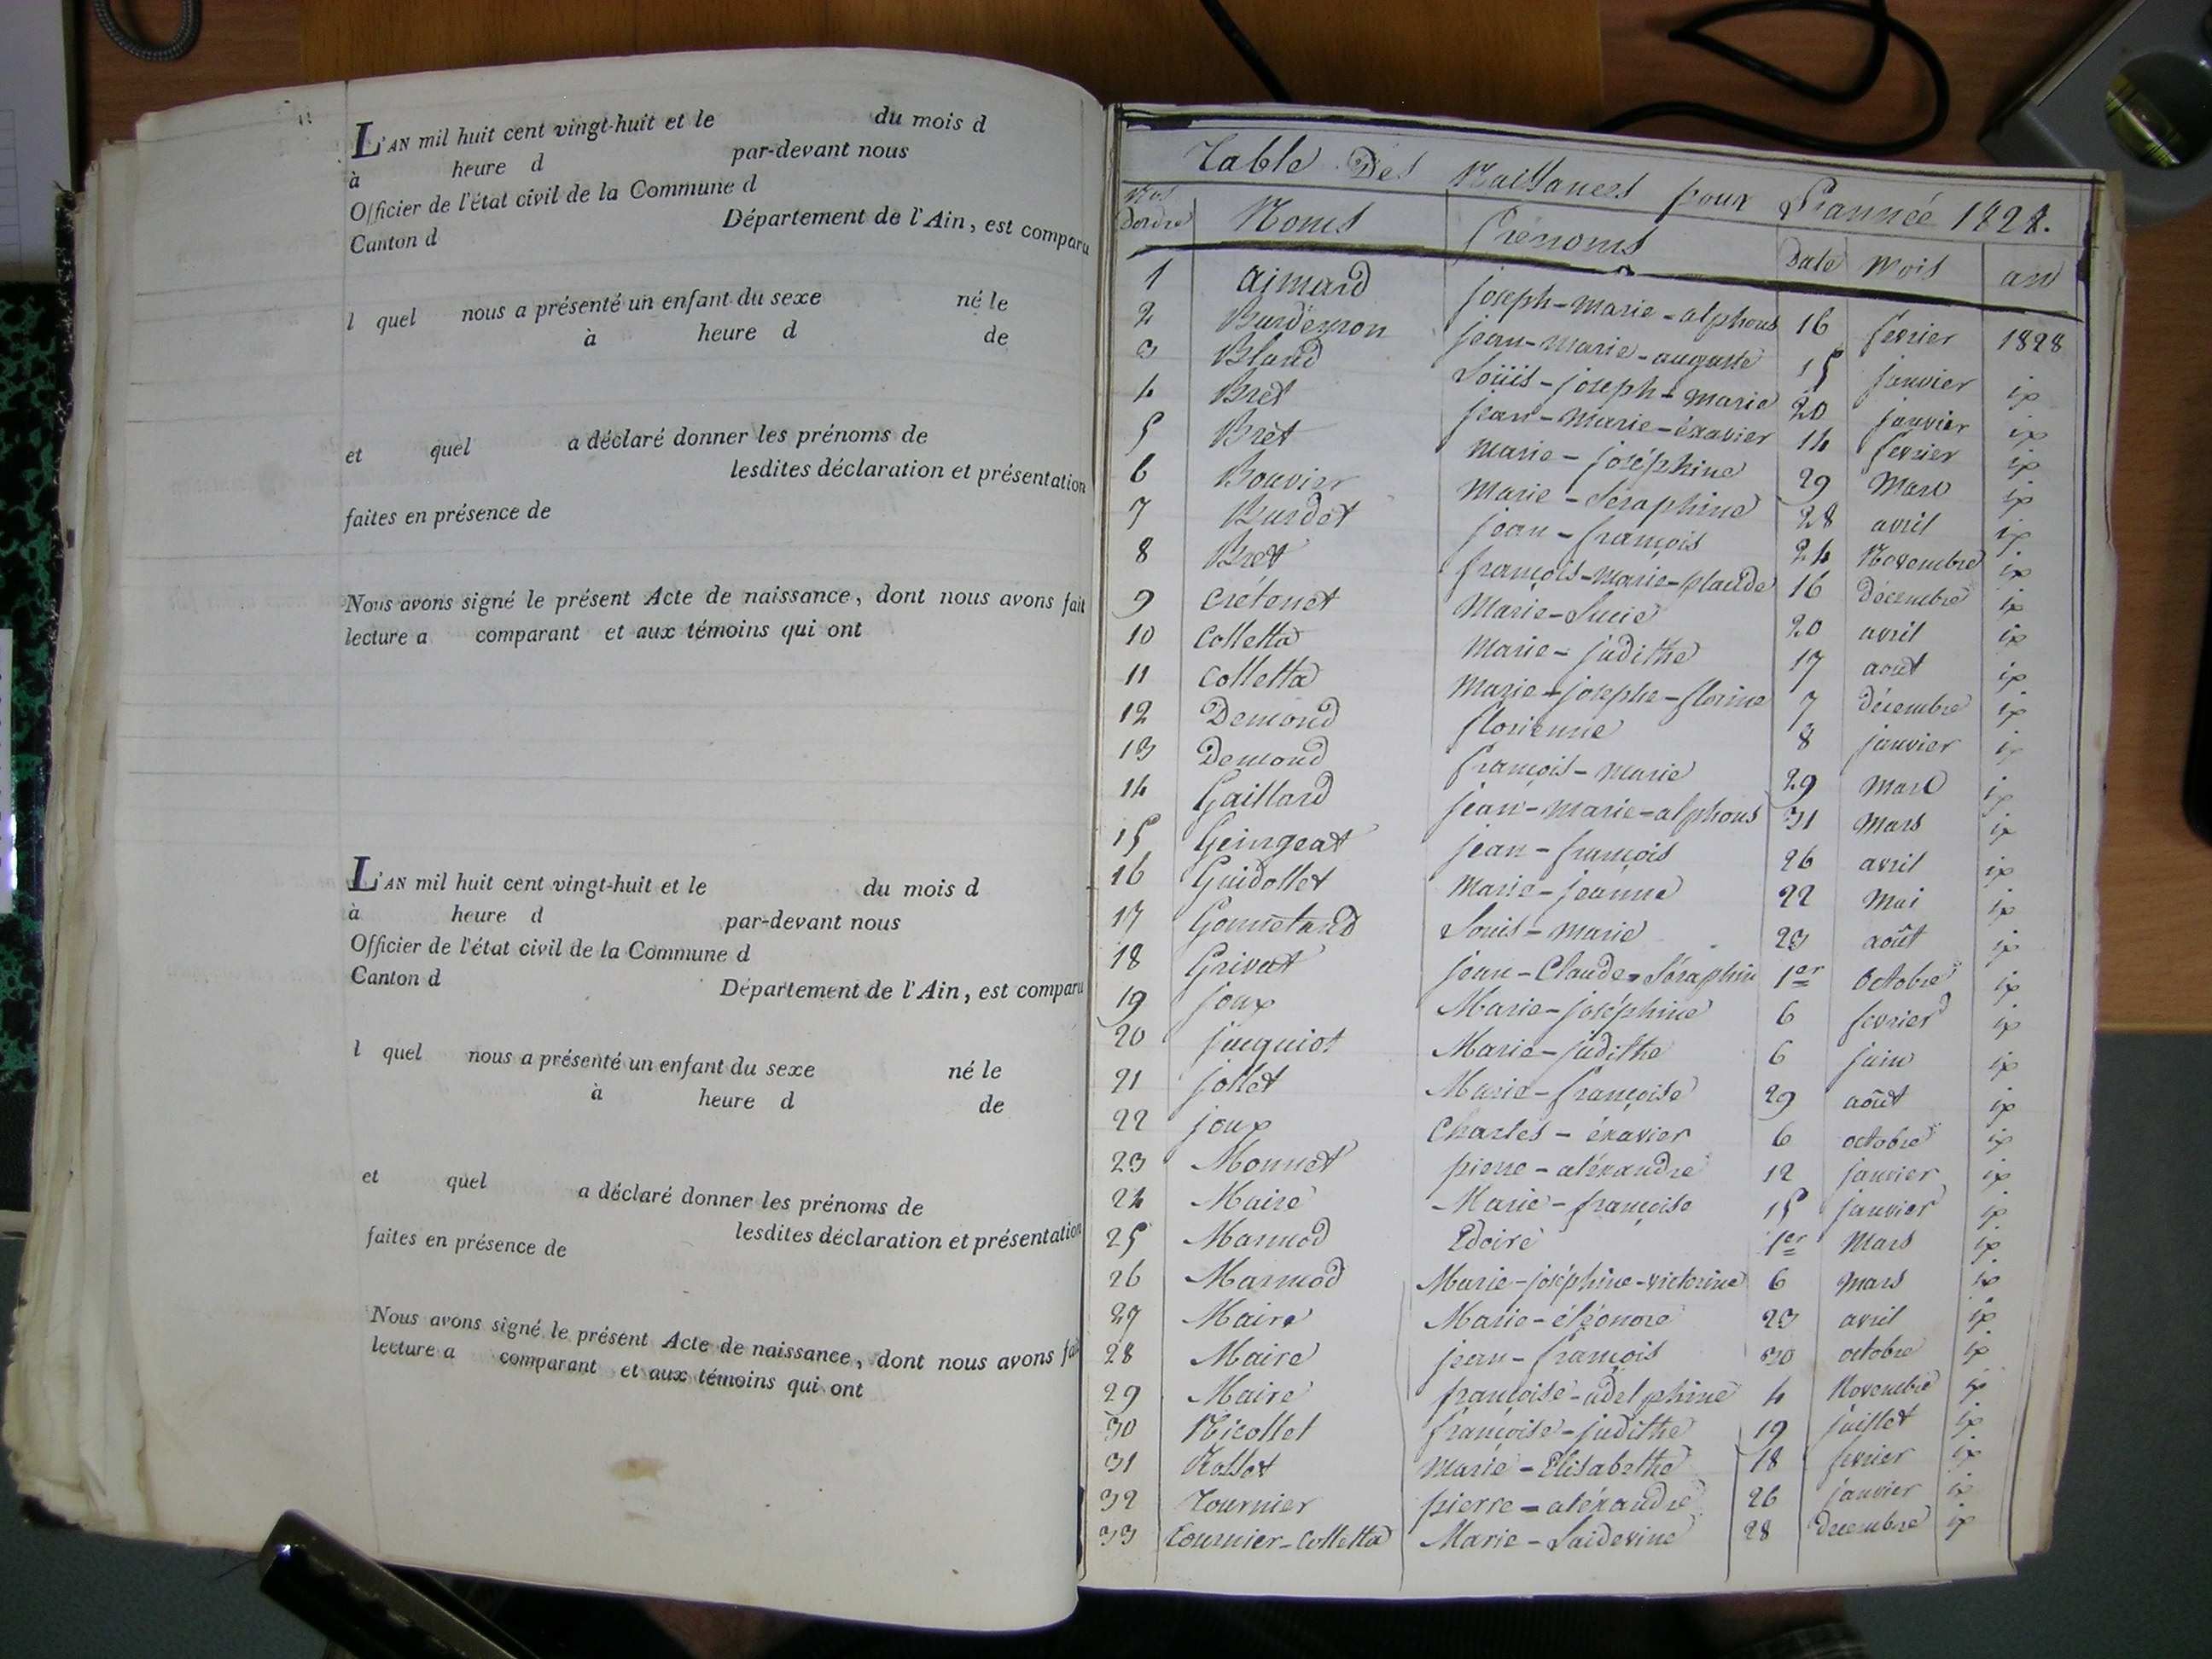 L'AN mil huit cent vingt-huit et le du mois d
à heure d par-devant nous
Officier de l'état civil de la Commune d
Canton d Département de l'Ain, est comparu
l quel nous a présenté un enfant du sexe né le
à heure d de
et quel a déclaré donner les prénoms de
lesdites déclaration et présentation
faites en présence de
Nous avons signé le présent Acte de naissance, dont nous avons fait
lecture a comparant et aux témoins qui ont
L'AN mil huit cent vingt-huit et le du mois d
à heure d par-devant nous
Officier de l'état civil de la Commune d
Canton d Département de l'Ain, est comparu
l quel nous a présenté un enfant du sexe né le
à heure d de
et quel a déclaré donner les prénoms de
lesdites déclaration et présentation
faites en présence de
Nous avons signé le présent Acte de naissance, dont nous avons fai
lecture a comparant et aux témoins qui ont
Table Des Naissances pour L'année 1828.
Nos Dordre Noms Prénoms Date Mois an
1 Aimard joseph-marie-alphons 16 fevrier 1828
2 Burdeyron jean-marie-auguste 15 janvier ix
3 Bland Loüis-joseph-marie 20 janvier ix
4 Bret jean-marie-éxavier 14 fevrier ix
5 Brèt marie-joséphine 29 Mars ix
6 Bouvier marie-Seraphine 28 avril ix
7 Burdet jean-françois 24 Novembre ix
8 Bret françois-marie-placide 16 décembre ix
9 Crétenet Marie-Lucie 20 avril ix
10 Colletta Marie-judithe 17 août ix
11 Colletta Marie-josephe-florine 7 décembre ix
12 Demond florienne 8 janvier ix
13 Demond françois-marie 29 Mars ix
14 Gaillard jean-marie-alphons 31 Mars ix
15 Geingeat jean-françois 26 avril ix
16 Guidollet Marie-jeanne 22 Mai ix
17 Gometand Louis-marie 23 août ix
18 Grivat jean-Claude-Séraphin 1er Octobre ix
19 joux Marie-joséphine 6 fevrier ix
20 juquiot Marie-judithe 6 juin ix
21 jollet Marie-françoise 29 août ix
22 joux Charles-éxavier 6 octobre ix
23 Monnet pierre-aléxandre 12 janvier ix
24 Maire Marie-françoise 15 janvier ix
25 Marmod Edoire 1er Mars ix
26 Marmod Marie-joséphine-victorine 6 mars ix
27 Maire Marie-éléonore 23 avril ix
28 Maire jean-françois 30 octobre ix
29 Maire françoise-adelphine 4 Novembre ix
30 Nicollet françoise-judithe 19 juillet ix
31 Rosset marie-Elisabethe 18 fevrier ix
32 Tournier pierre-aléxandre 26 janvier ix
33 Tournier-Colletta Marie-Laidevine 28 decembre ix